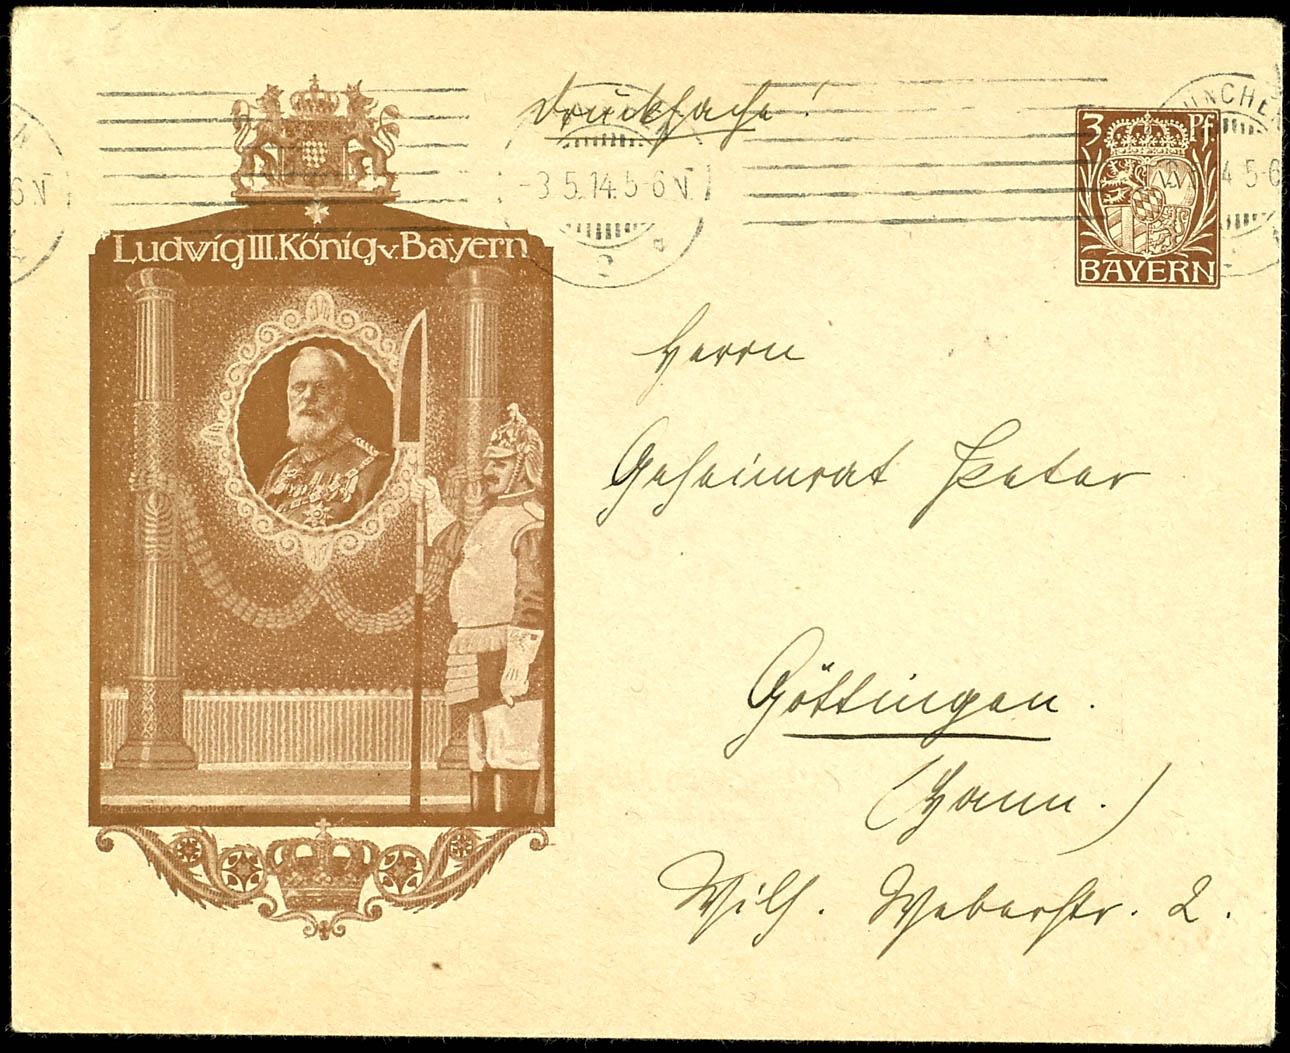 Drucksache!
MÜNCHEN
3 Pf
-3.5.14.5-6N
4 5-6
6N
BAYERN
Ludwig III. König v. Bayern
Herrn
Geheimrat Peter
Göttingen.
(Hann.)
Wilh. Weberstr. 2.